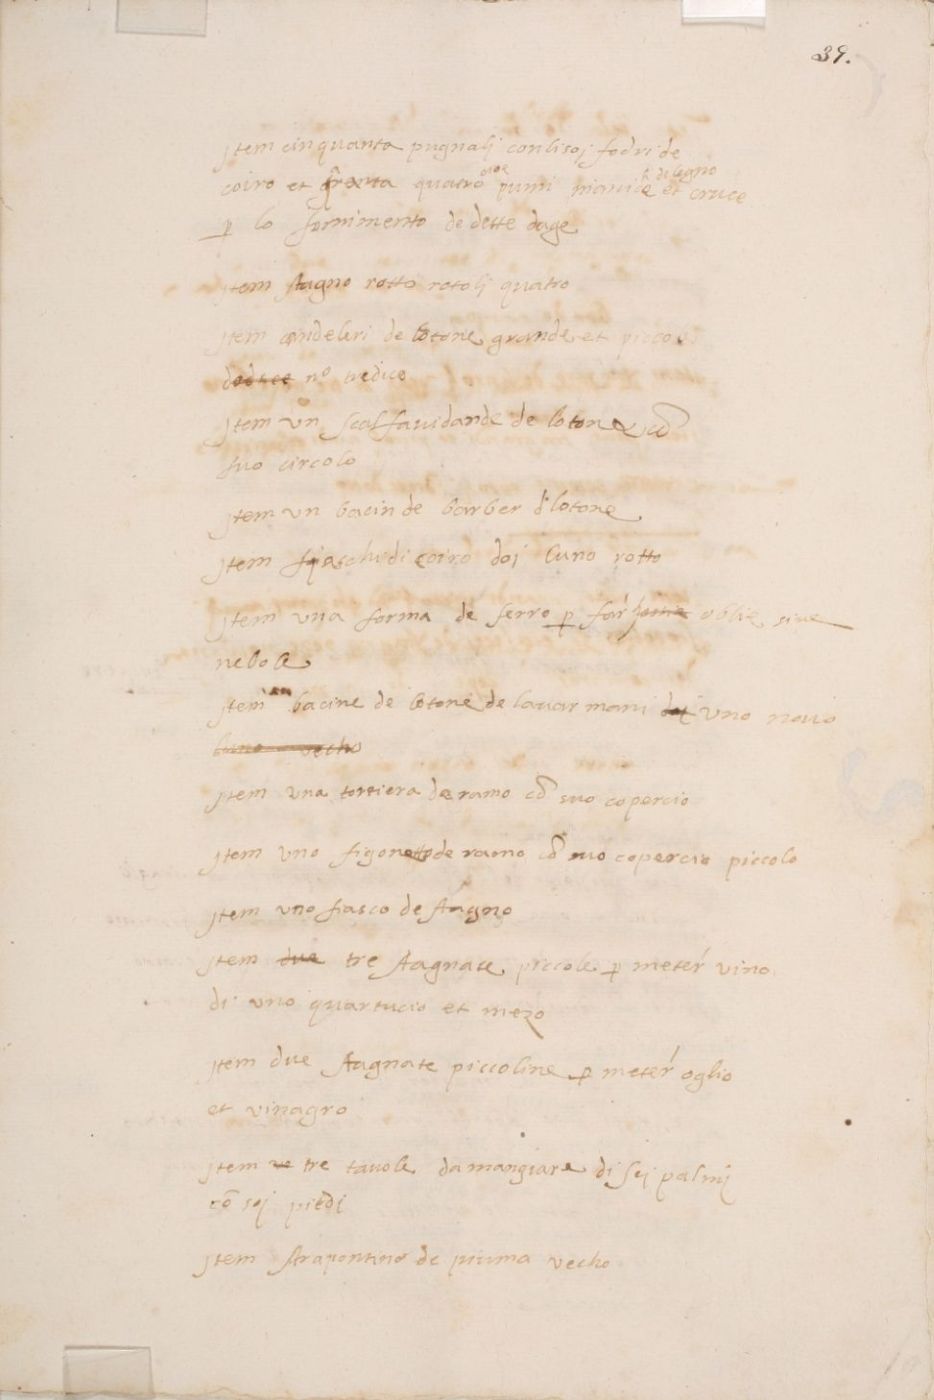 39.
Jtem cinquanta pugnalj con li soj fodri de
coiro et trenta quatro cioe pumi maniche di legno et cruce
p lo fornimento de dette dage
Jtem stagno rotto rotolj quatro
Jtem candeleri de lotone grande et piccoli
dodece n° tredice
Jtem un scalfavidande de lotone cō
suo circolo
Jtem un bacin de barber d lotone
Jtem fiaschi di coiro doj luno rotto
Jtem una forma de ferro p far oblie sive
nebole
Jtem un bacine de lotone de lavar mani doi uno novo
luno vecho
Jtem una tortiera de ramo cō suo copercio
Jtem uno figonetto de ramo cō suo copercio piccolo
Jtem uno fiasco de stagno
Jtem due tre stagnate piccole p meter vino
di uno quartucio et mezo
Jtem due stagnate piccoline p meter oglio
et vinagro
Jtem tre tavole da mangiare di sej palmj
cō soj piedi
Jtem strapontino de piuma vecho